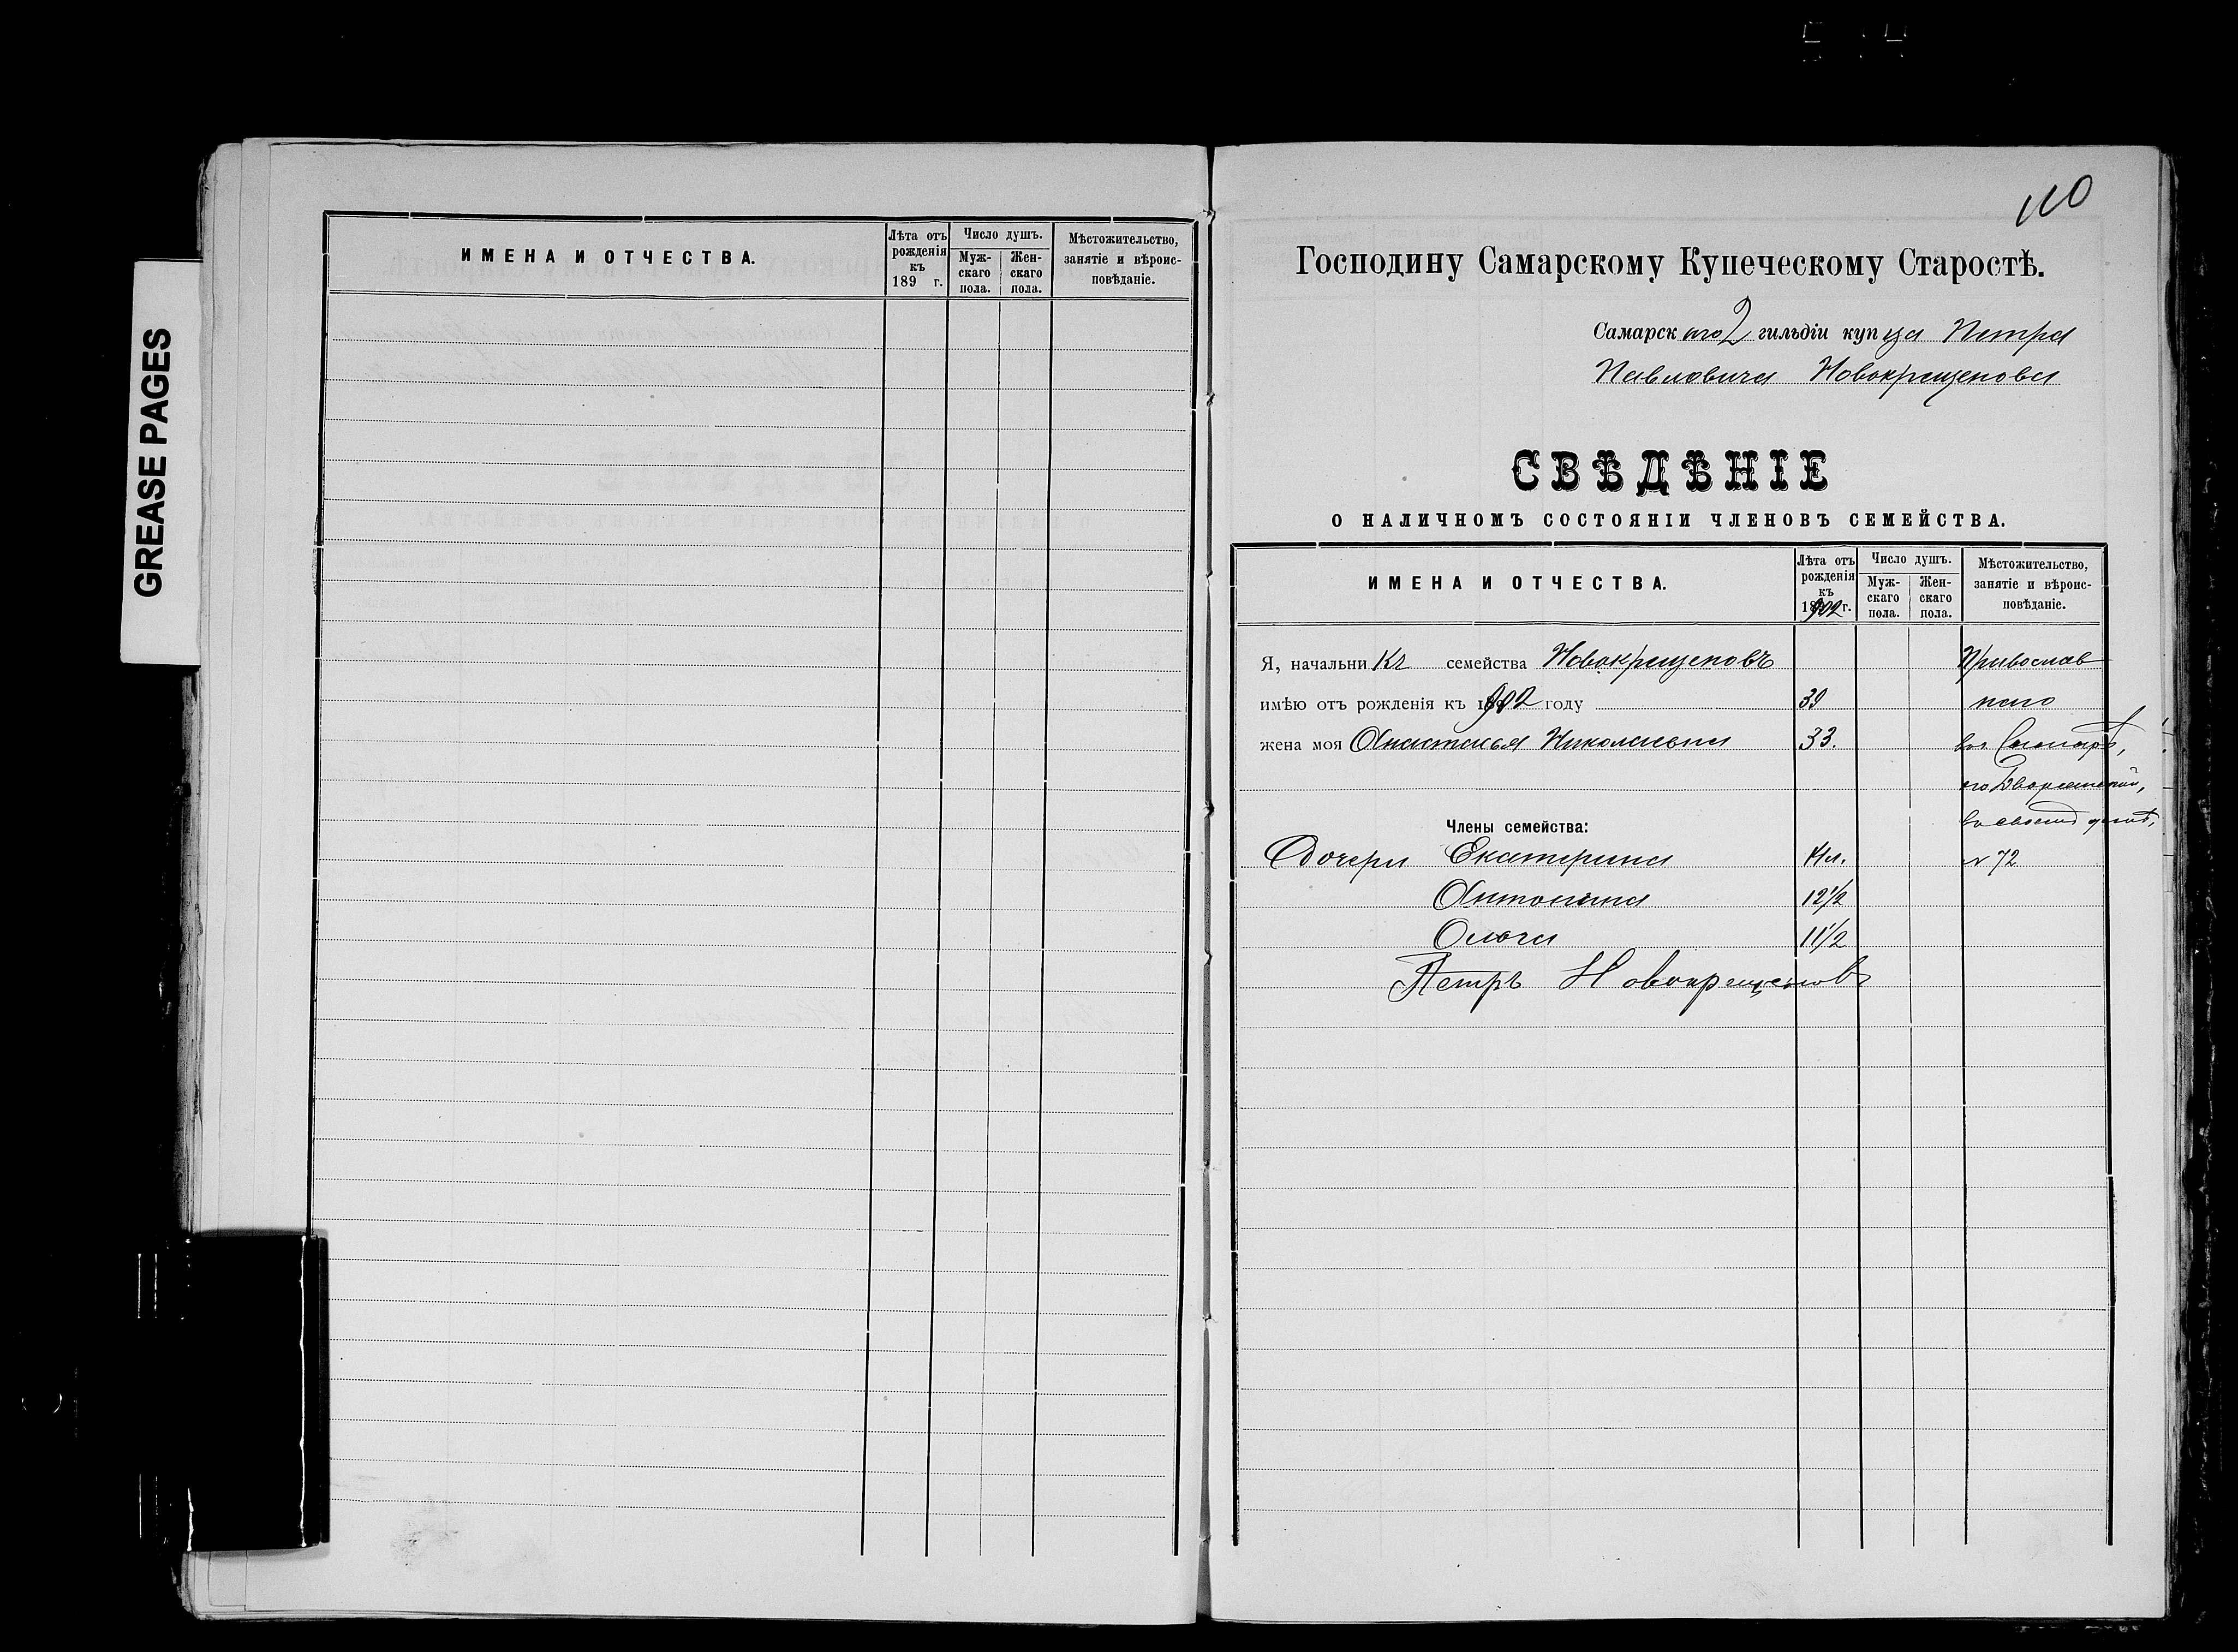 GREASE PAGES
ИМЕНА И ОТЧЕСТВА.
Лѣта отъ рожденія къ 189 г.
Число душъ.
Муж-скаго пола.
Жен-скаго пола.
Мѣстожительство, занятіе и вѣроис-повѣданіе.
110
Господину Самарскому Купеческому Старостѣ.
Самарскаго 2 гильдіи купца Петра
Павловича Новокрещенова
СВѢДѢНІЕ
О НАЛИЧНОМЪ СОСТОЯНІИ ЧЛЕНОВЪ СЕМЕЙСТВА.
ИМЕНА И ОТЧЕСТВА.
Лѣта отъ рожденія къ 1902 г.
Число душъ.
Муж-скаго пола.
Жен-скаго пола.
Мѣстожительство, занятіе и вѣроис-повѣданіе.
Я, начальникъ семейства Новокрещеновъ Православ
имѣю отъ рожденія къ 1902 году 39 наго
жена моя Анастасья Николаевна 33. въ Самарѣ,
по Дворянской,
въ своемъ домѣ,
Члены семейства:
Дочери Екатерина № 72
Антонина 12 1/2
Ольга 11 1/2
Петръ Новокрещеновъ